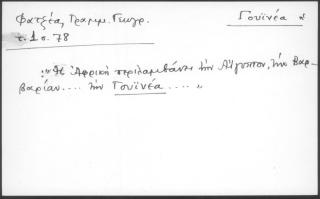 Φατζέα, Γραμμ. Γεωγρ. Γουϊνέα
τ. 1 σ. 78
:"Η Ἀφρικὴ περιλαμβάνει τὴν Αἴγυπτον, τὴν Βαρ-
βαρίαν.... τὴν Γουϊνέα.... "